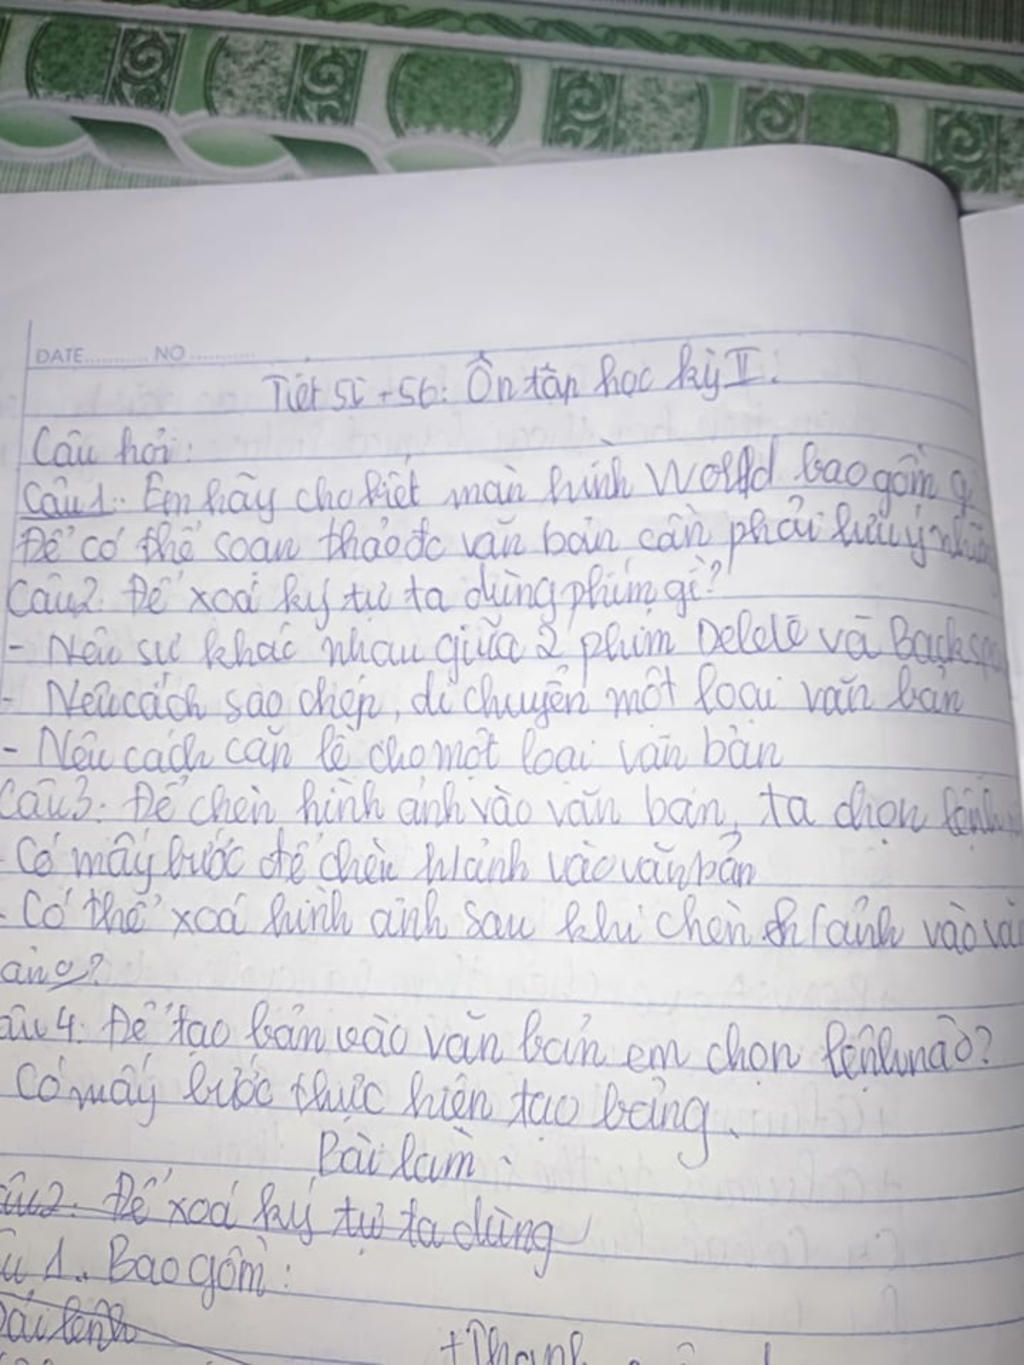 DATE............ NO............
Tiết 55 + 56: Ôn tập học kỳ II.
Câu hỏi:
Câu 1: Em hãy cho biết màn hình World bao gồm g
Để có thể soạn thảo đc văn bản cần phải lưu ý nhữ
Câu 2: Để xoá ký tự ta dùng phím gì?
- Nêu sự khác nhau giữa 2 phím Delete và Backspa
- Nêu cách sao chép, di chuyển một loại văn bản
- Nêu cách căn lề cho một loại văn bản
Câu 3: Để chèn hình ảnh vào văn bản, ta chọn lệnh
- Có mấy bước để chèn h/ảnh vào văn bản
- Có thể xoá hình ảnh sau khi chèn h/ảnh vào vă
ảng?
âu 4: Để tạo bản vào văn bản em chọn lệnh nào?
Có mấy bước thực hiện tạo bảng.
Bài làm.
âu 2: Để xoá ký tự ta dùng
u 1. Bao gồm:
Dải lệnh
+ Thanh